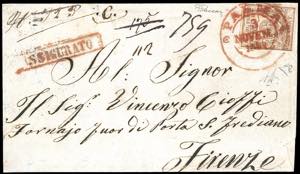 C.
759
112
ASSICURATO
PARMA
3
NOVEM.
Al Signor
Il Sig. Vincenzo Cioffi
Fornajo fuor di Porta S. Frediano
Firenze